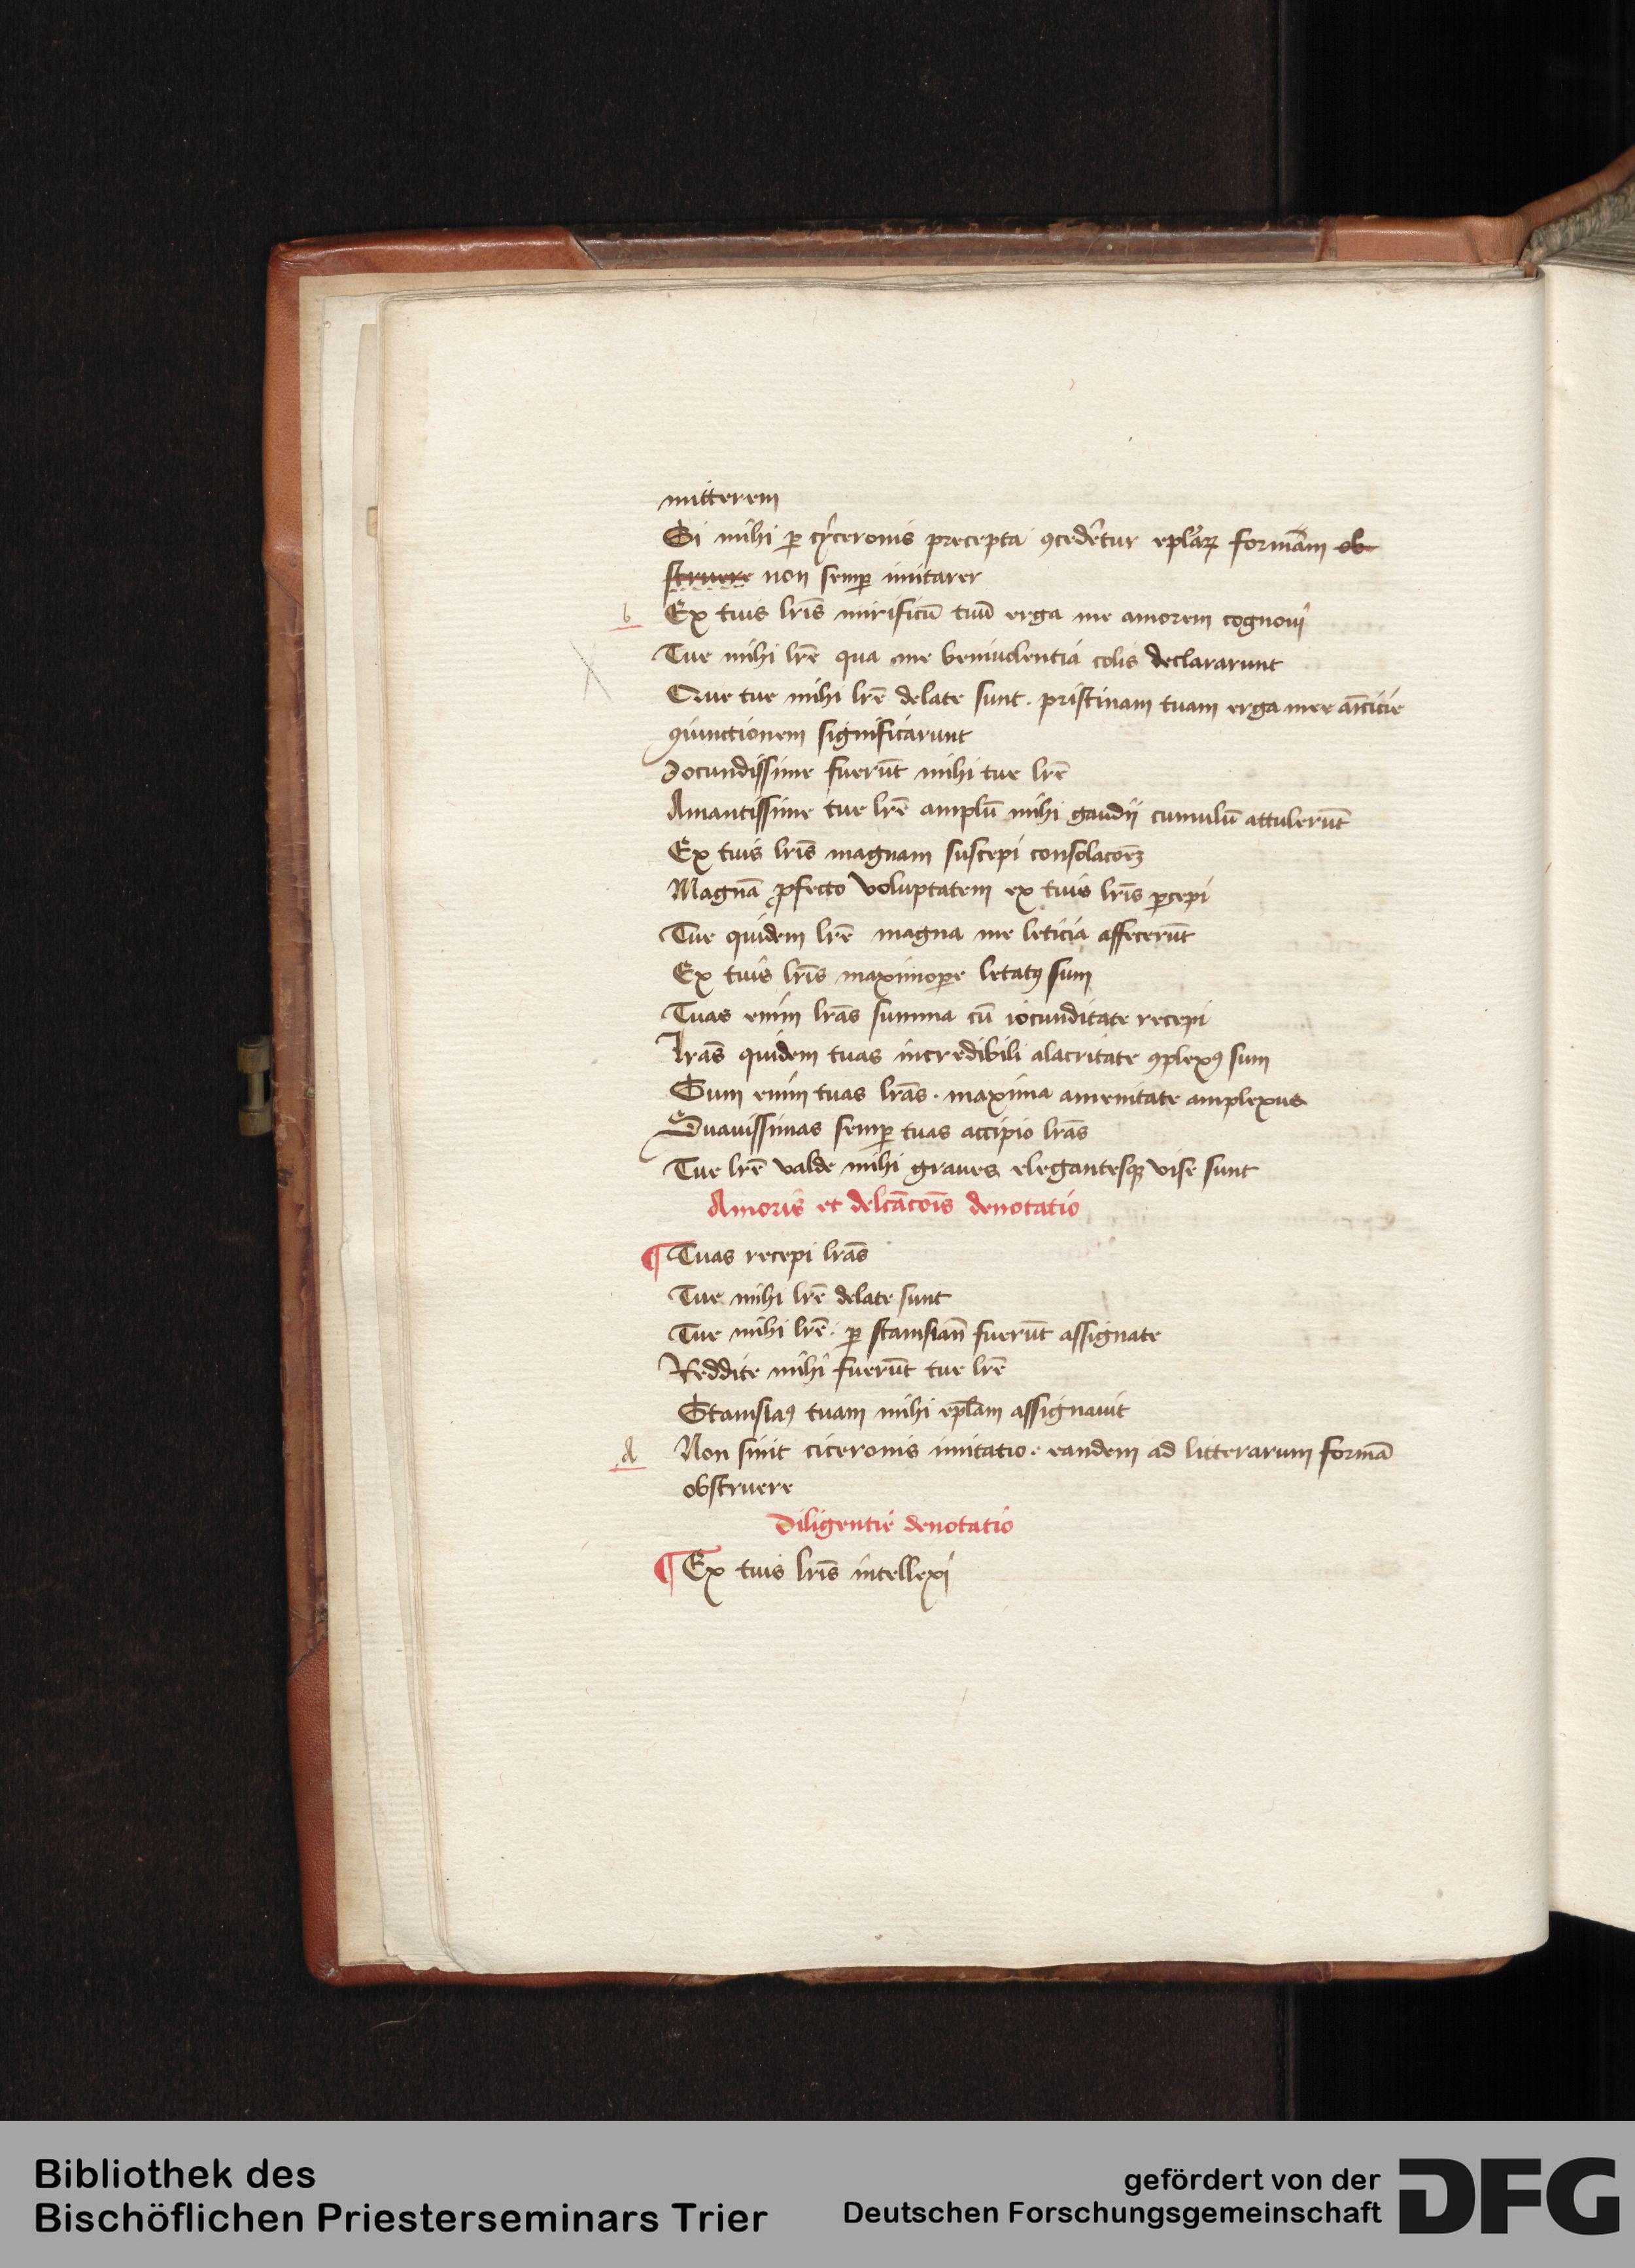 mitterem
Si mihi ꝑ cÿceronis precepta ꝯcedetur epl̄aꝝ formam̄ ob
struere non semꝑ imitarer
b Ex tuis lr̄is mirificū tuū erga me amorem cognoui
Tue mihi lr̄e qua me beniuolentia colis declararunt
Que tue mihi lr̄e delate sunt . pristinam tuam erga me am̄icicie
ꝯiunctionem significarunt
Jocundissime fuerūt mihi tue lr̄e
Amantissime tue lr̄e amplū mihi gaudij cumulū attulerūt
Ex tuis lr̄is magnam suscepi consolacōeꝫ
Magnā ꝓfecto voluptatem ex tuis lr̄is ꝑcepi
Tue quidem lr̄e magna me leticia affecerūt
Ex tuis lr̄is maximoꝑe letatꝯ sum
Tuas enim lr̄as summa cū iocunditate recepi
lr̄as quidem tuas incredibili alacritate ꝯplexꝯ sum
Sum enim tuas lr̄as . maxima amenitate amplexus
Suauissimas semꝑ tuas accipio lr̄as
Tue lr̄e valde mihi graues elegantesqꝫ vise sunt
Amoris et delc̄acōis denotatio
¶ Tuas recepi lr̄as
Tue mihi lr̄e delate sunt
Tue mihi lr̄e . ꝑ stanislaū fuerūt assignate
Reddite mihi fuerūt tue lr̄e
Stanislaꝯ tuam mihi epl̄am assignauit
A Non sinit ciceronis imitatio . eandem ad litterarum formā
obstruere
diligentie denotatio
¶ Ex tuis lr̄is intellexi
Bibliothek des
Bischöflichen Priesterseminars Trier
gefördert von der
Deutschen Forschungsgemeinschaft
DFG